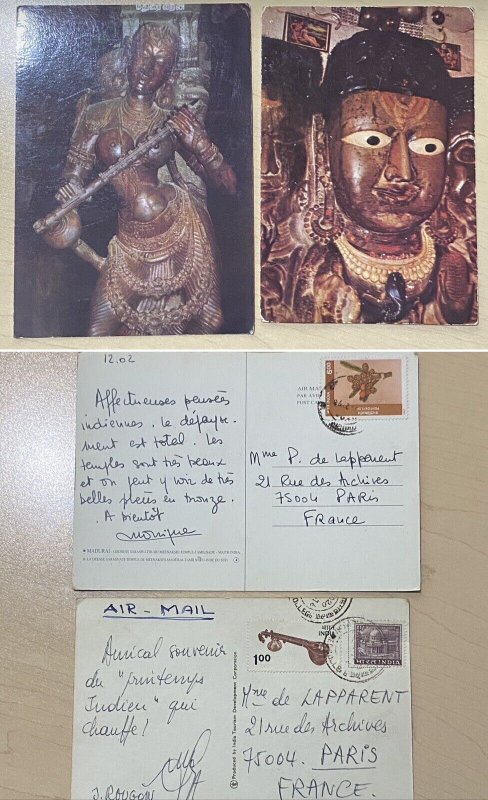 12.02
Affectueuses pensées
indiennes. le dépayse-
ment est total. Les
temples sont très beaux
et on peut y voir de très
belles pièces en bronze.
A bientôt
Monique
AIR MAIL
PAR AVION
POST CARD
6.00
Mme P. de Lapparent
21 Rue des Archives
75004 PARIS
France
AIR-MAIL
Amical souvenir
du "printemps
Indien" qui
chauffe!
J. ROUGON
Produced by India Tourism Development Corporation
1.00
भारत INDIA
Mme de LAPPARENT
21 rue des Archives
75004. PARIS
FRANCE.